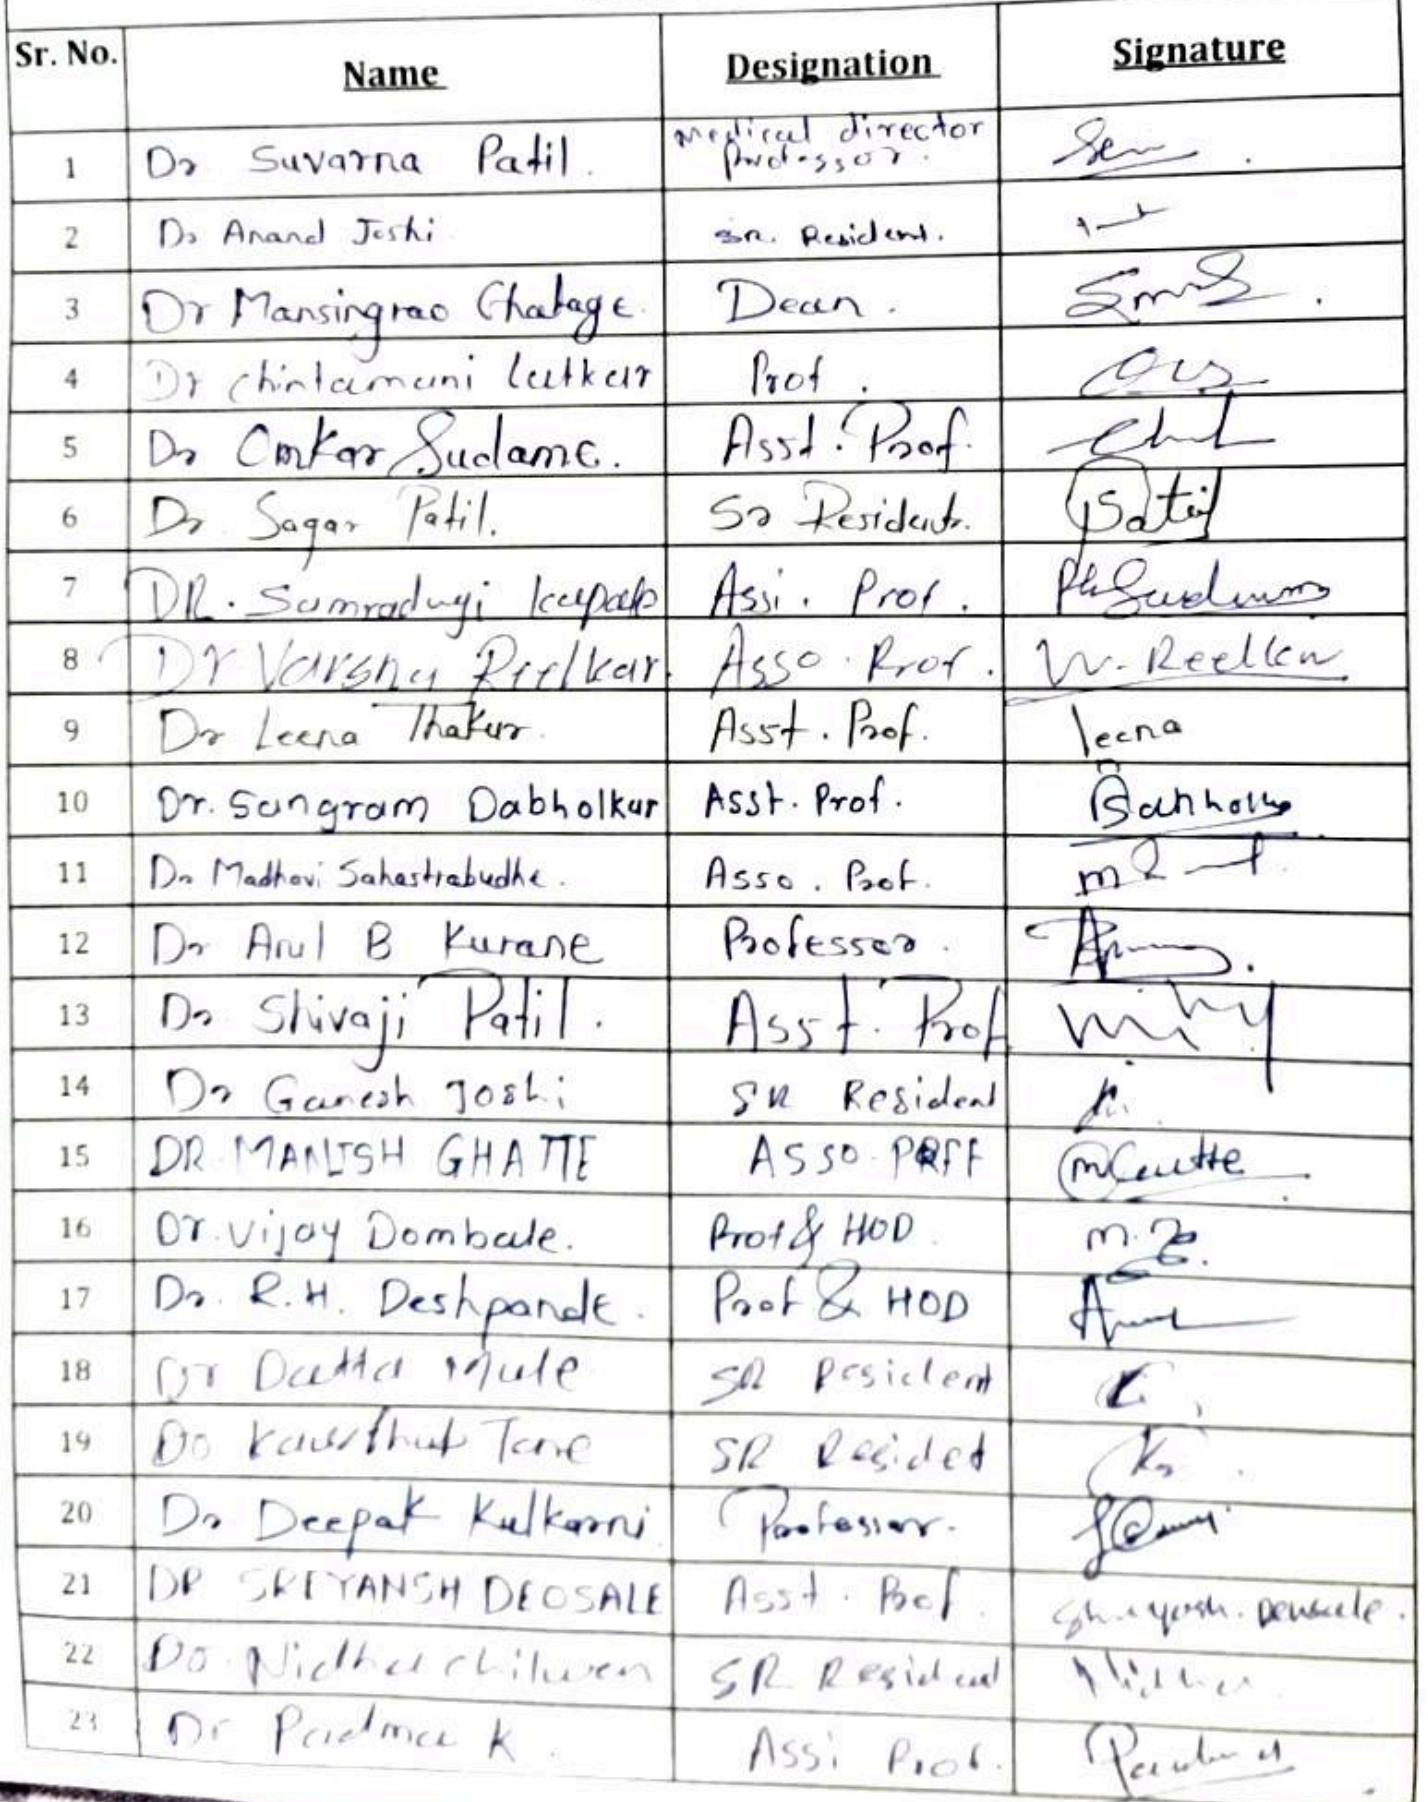 Sr. No. Name Designation Signature
1 Dr Suvarna Patil. Medical director
Professor.
2 Dr Anand Joshi Sr. Resident.
3 Dr Mansingrao Ghatage. Dean.
4 Dr Chintamani Latkar Prof.
5 Dr Omkar Sudame. Asst. Prof.
6 Dr Sagar Patil. Sr Resident. Patil
7 DR. Samradnyi Assi. Prof.
8 Dr Varsha Reelkar. Asso. Prof. V. Reelkar
9 Dr Leena Thakur. Asst. Prof. leena
10 Dr. Sangram Dabholkar Asst. Prof.
11 Dr Madhavi Sahastrabudhe. Asso. Prof.
12 Dr Arul B Kurane Professor.
13 Dr Shivaji Patil. Asst. Prof
14 Dr Ganesh Joshi SR Resident
15 DR. MANISH GHATTE ASSO. PROFF
16 Dr. Vijay Dombale. Prof & HOD
17 Dr. R.H. Deshpande. Prof & HOD
18 Dr Datta Mule SR Resident
19 Dr Kausthub Tane SR Residet
20 Dr Deepak Kulkarni Professor.
21 DR SREYANSH DEOSALE Asst. Prof.
22 Dr. Nidha SR Resident Nidha
23 Dr Padma K. Assi Prof.